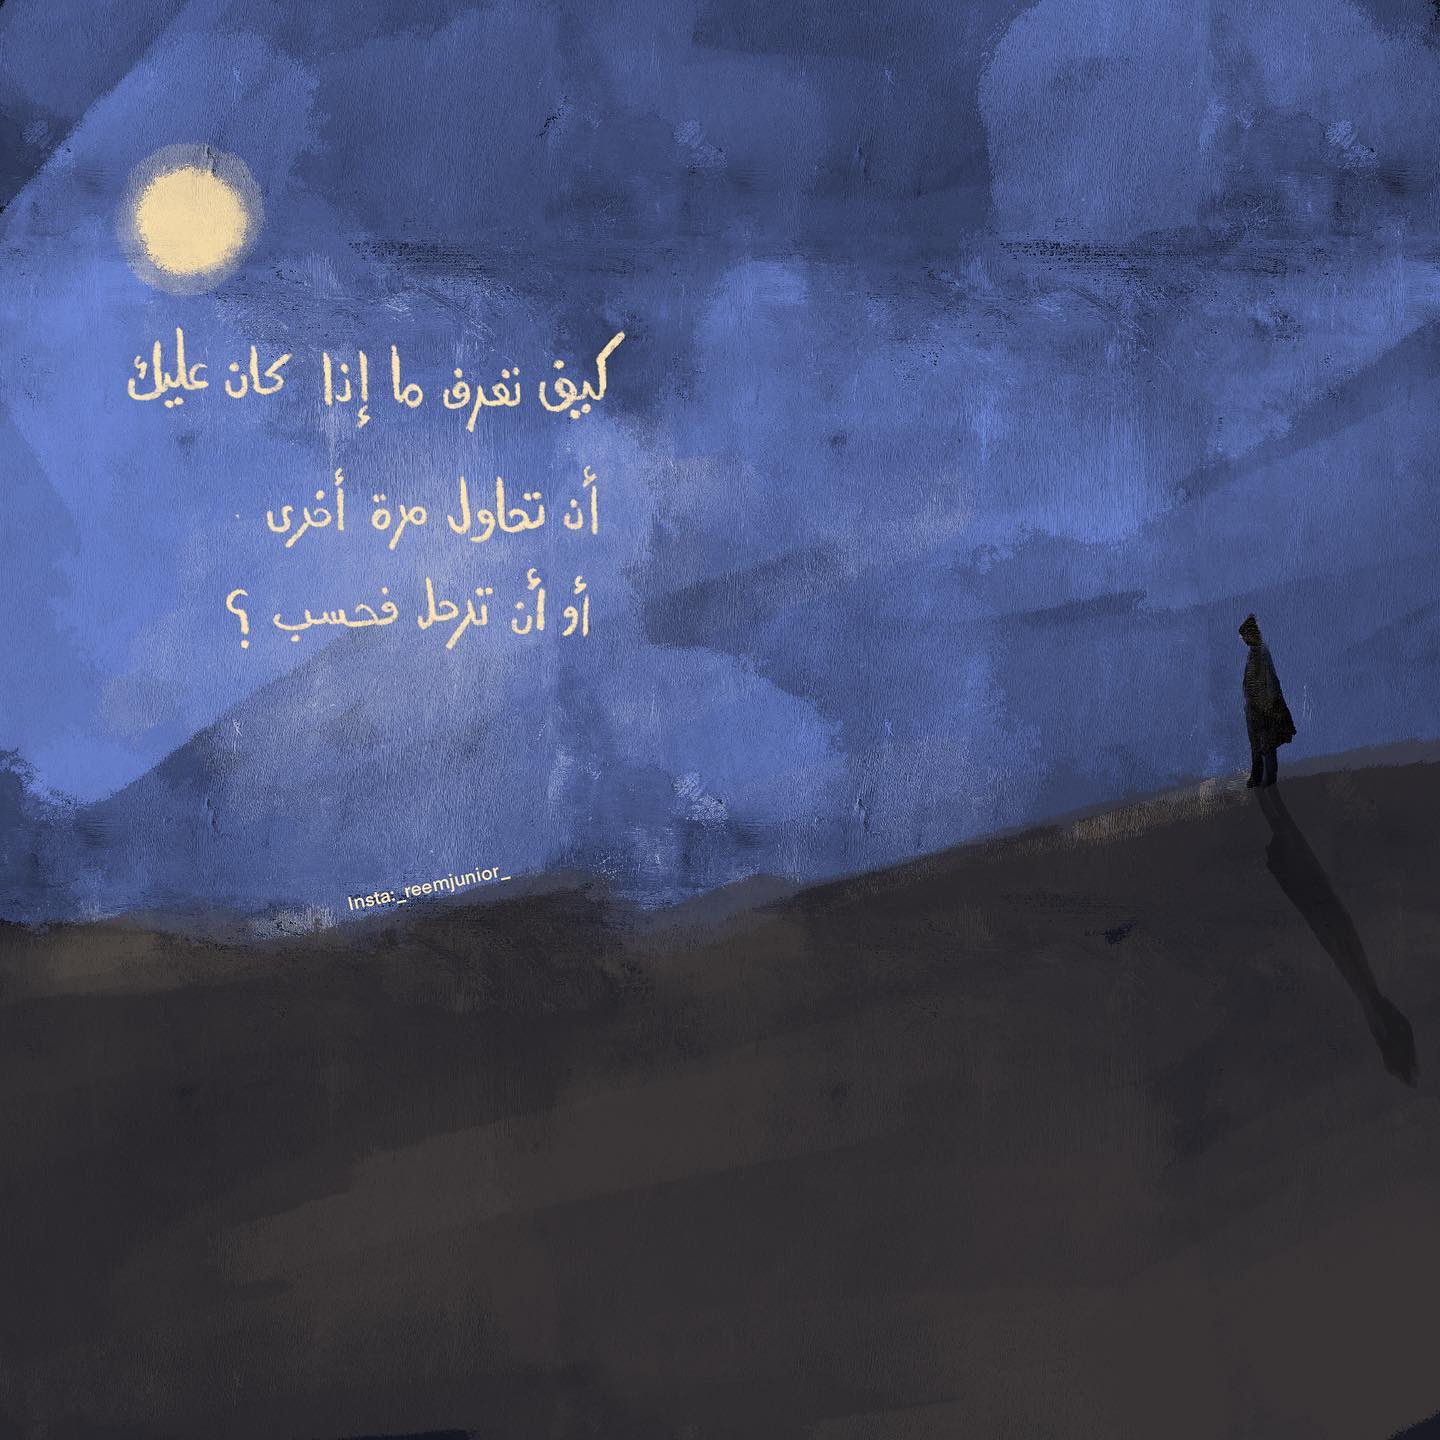 كيف تعرف ما إذا كان عليك
أن تحاول مرة أخرى
أو أن ترحل فحسب ؟
Insta:_reemjunior_